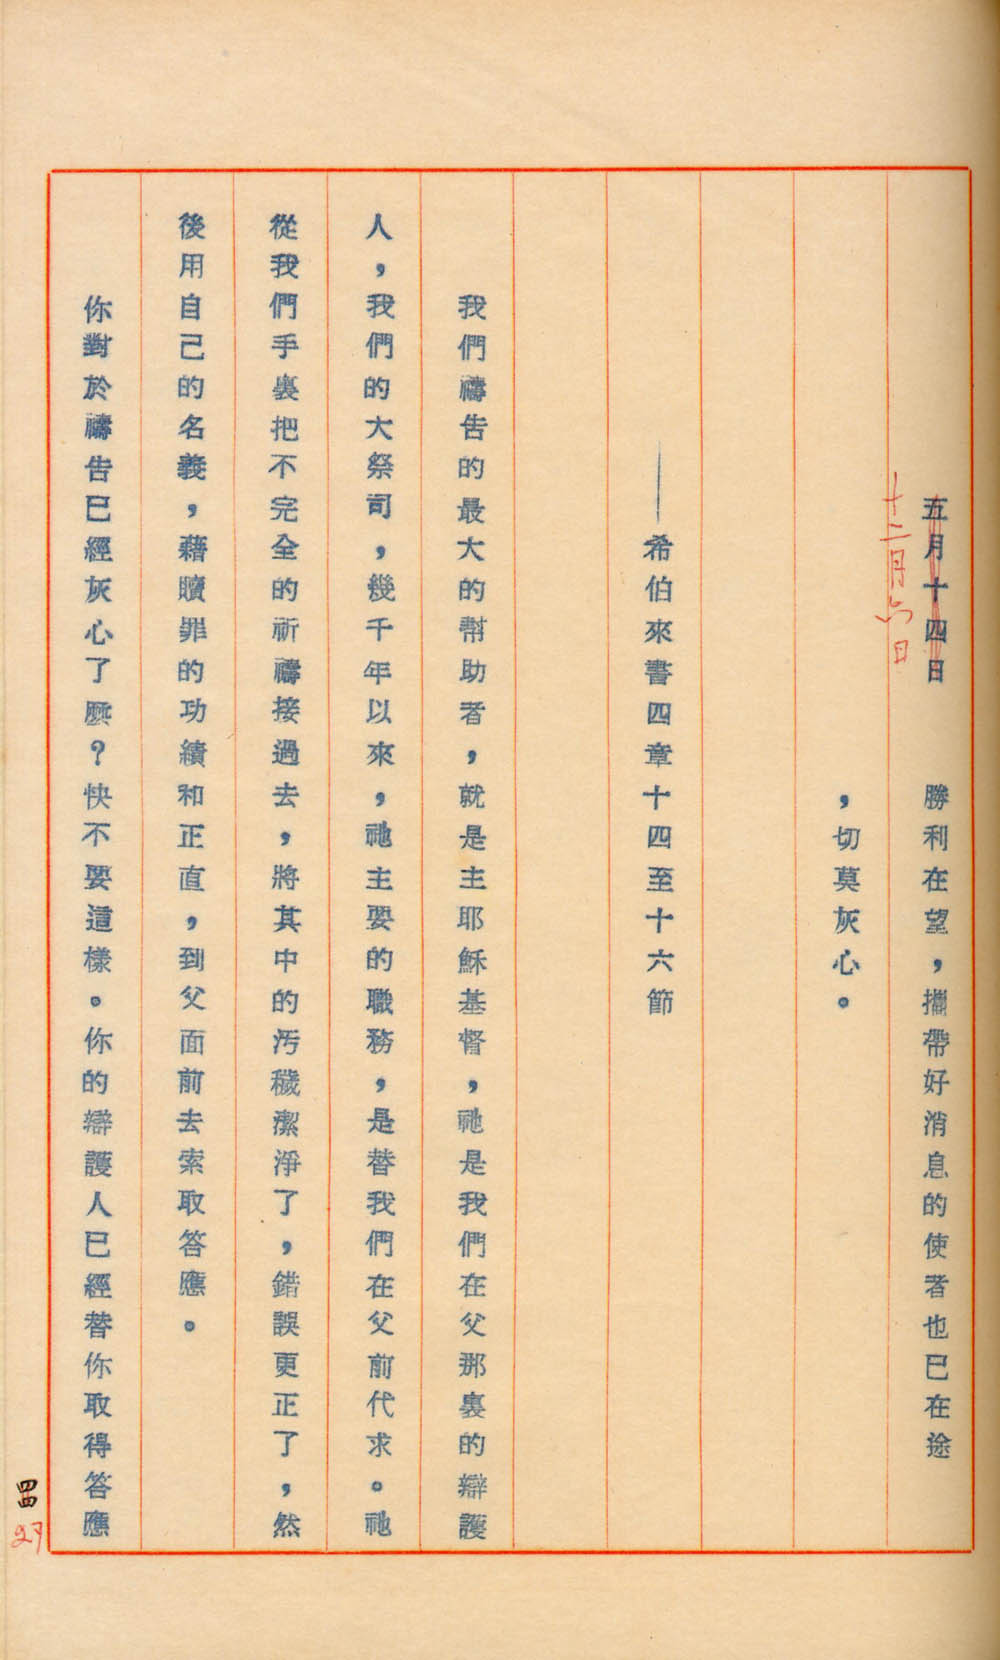 五月十四日　勝利在望，攜帶好消息的使者也已在途
十二月六日
，切莫灰心。
——希伯來書四章十四至十六節
我們禱告的最大的幫助者，就是主耶穌基督，祂是我們在父那裏的辯護
人，我們的大祭司，幾千年以來，祂主要的職務，是替我們在父前代求。祂
從我們手裏把不完全的祈禱接過去，將其中的汚穢潔淨了，錯誤更正了，然
後用自己的名義，藉贖罪的功績和正直，到父面前去索取答應。
你對於禱告已經灰心了麼？快不要這樣。你的辯護人已經替你取得答應
27